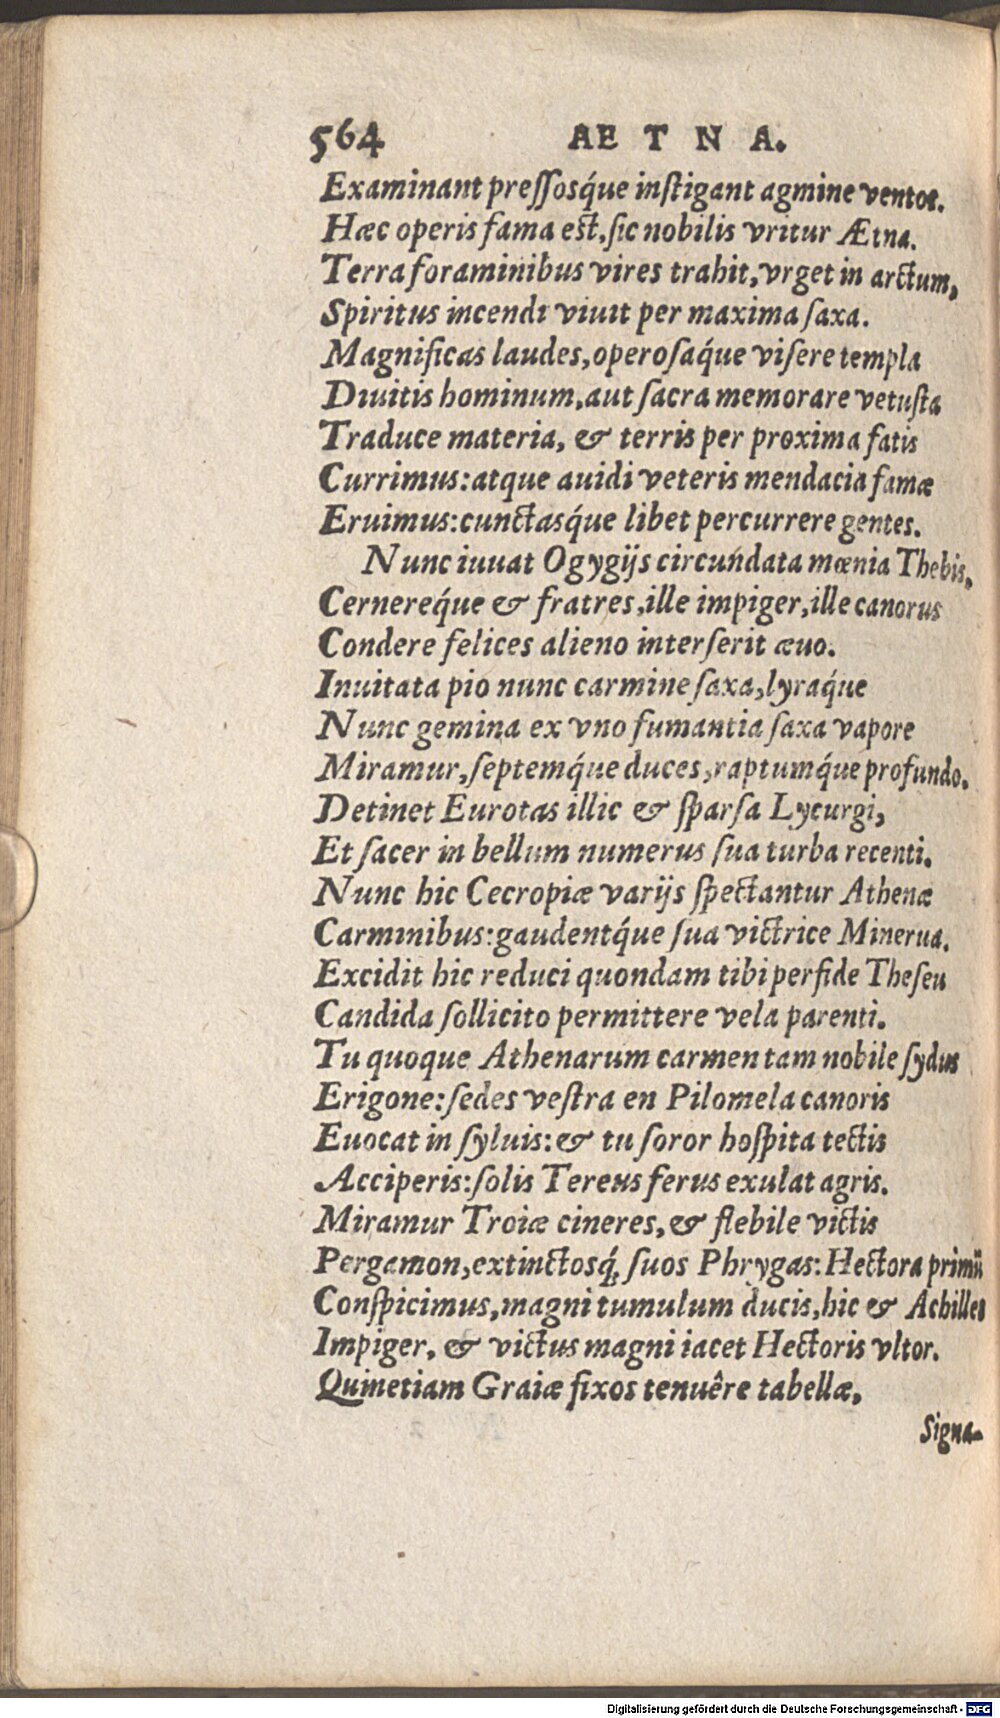 564 AETNA.
Examinant pressosq́ue instigant agmine ventos.
Hæc operis fama est, sic nobilis vritur Ætna.
Terra foraminibus vires trahit, vrget in arctum,
Spiritus incendi viuit per maxima saxa.
Magnificas laudes, operosaq́ue visere templa
Diuitis hominum, aut sacra memorare vetusta
Traduce materia, & terris per proxima fatis
Currimus: atque auidi veteris mendacia famæ
Eruimus: cunctasq́ue libet percurrere gentes.
Nunc iuuat Ogygijs circundata mœnia Thebis,
Cernereq́ue & fratres, ille impiger, ille canorus
Condere felices alieno interserit æuo.
Inuitata pio nunc carmine saxa, lyraq́ue
Nunc gemina ex vno fumantia saxa vapore
Miramur, septemq́ue duces, raptumq́ue profundo.
Detinet Eurotas illic & sparsa Lycurgi,
Et sacer in bellum numerus sua turba recenti.
Nunc hic Cecropiæ varijs spectantur Athenæ
Carminibus: gaudentq́ue sua victrice Minerua.
Excidit hic reduci quondam tibi perfide Theseu
Candida sollicito permittere vela parenti.
Tu quoque Athenarum carmen tam nobile sydus
Erigone: sedes vestra en Pilomela canoris
Euocat in syluis: & tu soror hospita tectis
Acciperis: solis Tereus ferus exulat agris.
Miramur Troiæ cineres, & flebile victis
Pergamon, extinctosq́; suos Phrygas: Hectora primū
Conspicimus, magni tumulum ducis, hic & Achilles
Impiger, & victus magni iacet Hectoris vltor.
Quinetiam Graiæ fixos tenuêre tabellæ,
Signa-
Digitalisierung gefördert durch die Deutsche Forschungsgemeinschaft - DFG